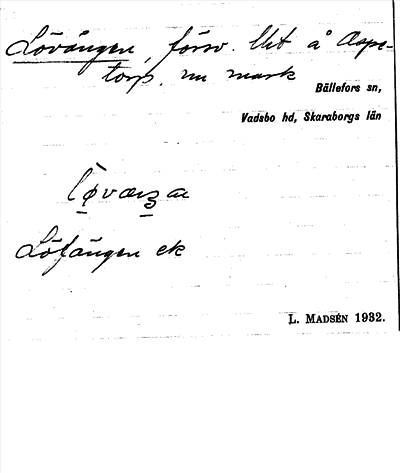 Lövängen, försv. lht å Aspe-
torp, nu mark
Bällefors sn,
Vadsbo hd, Skaraborgs län
Löfängen ek
L. MADSÉN 1932.